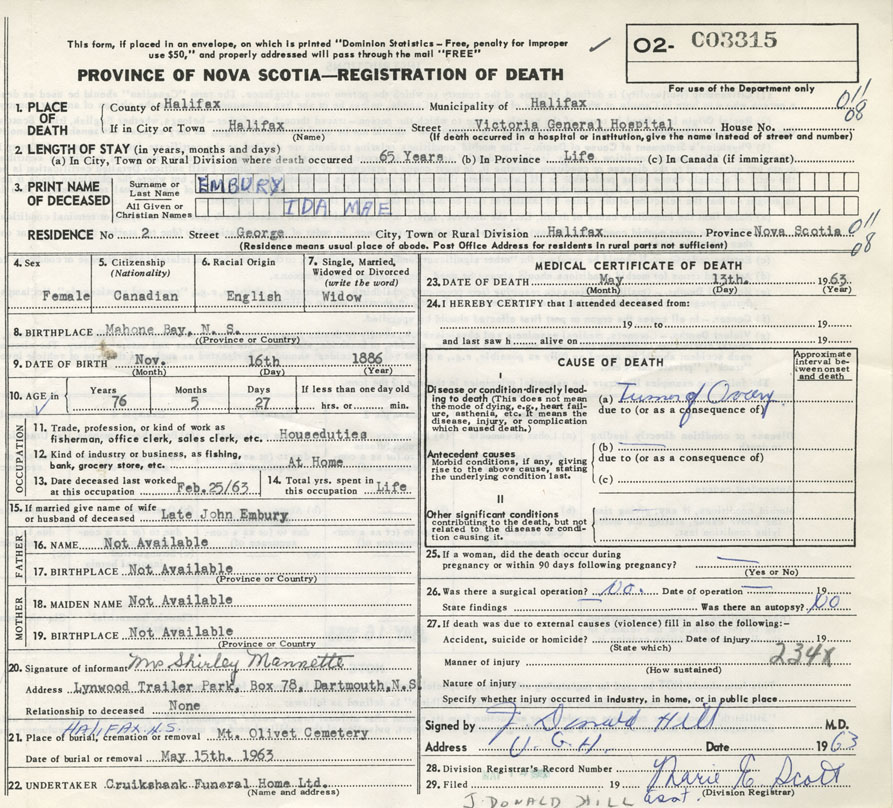 This form, if placed in an envelope, on which is printed "Dominion Statistics – Free, penalty for improper
use $50," and properly addressed will pass through the mail "FREE"
✓
O2- C03315
For use of the Department only
PROVINCE OF NOVA SCOTIA—REGISTRATION OF DEATH
011
08
1. PLACE OF DEATH County of Halifax Municipality of Halifax
If in City or Town Halifax Street Victoria General Hospital House No.
(Name) (If death occurred in a hospital or institution, give the name instead of street and number)
2. LENGTH OF STAY (in years, months and days)
(a) In City, Town or Rural Division where death occurred 65 Years (b) In Province Life (c) In Canada (if immigrant)
3. PRINT NAME OF DECEASED Surname or Last Name EMBURY
All Given or Christian Names IDA MAE
RESIDENCE No 2 Street George City, Town or Rural Division Halifax Province Nova Scotia 011
08
(Residence means usual place of abode. Post Office Address for residents in rural parts not sufficient)
4. Sex Female
5. Citizenship (Nationality) Canadian
6. Racial Origin English
7. Single, Married, Widowed or Divorced (write the word) Widow
8. BIRTHPLACE Mahone Bay, N. S.
(Province or Country)
9. DATE OF BIRTH Nov. 16th 1886
(Month) (Day) (Year)
10. AGE in Years 76 Months 5 Days 27 If less than one day old hrs. or min.
✓
OCCUPATION
11. Trade, profession, or kind of work as
fisherman, office clerk, sales clerk, etc. Houseduties
12. Kind of industry or business, as fishing,
bank, grocery store, etc. At Home
13. Date deceased last worked at this occupation Feb.25/63 14. Total yrs. spent in this occupation Life
15. If married give name of wife or husband of deceased Late John Embury
FATHER
16. NAME Not Available
17. BIRTHPLACE Not Available
(Province or Country)
MOTHER
18. MAIDEN NAME Not Available
19. BIRTHPLACE Not Available
(Province or Country
20. Signature of informant Mrs Shirley Mannette
Address Lynwood Trailer Park, Box 78, Dartmouth,N.S
Relationship to deceased None
HALIFAX N.S.
21. Place of burial, cremation or removal Mt. Olivet Cemetery
Date of burial or removal May 15th. 1963
22. UNDERTAKER Cruikshank Funeral Home Ltd.
(Name and address)
MEDICAL CERTIFICATE OF DEATH
23. DATE OF DEATH May 13th. 1963.
(Month) (Day) (Year)
24. I HEREBY CERTIFY that I attended deceased from:
19 to 19
and last saw h alive on 19
CAUSE OF DEATH
Approximate interval between onset and death
I
Disease or condition directly leading to death (This does not mean the mode of dying, e.g., heart failure, asthenia, etc. It means the disease, injury, or complication which caused death.)
(a) Tumor of Ovary
due to (or as a consequence of)
Antecedent causes
Morbid conditions, if any, giving rise to the above cause, stating the underlying condition last.
(b)
due to (or as a consequence of)
(c)
II
Other significant conditions
contributing to the death, but not related to the disease or condition causing it.
25. If a woman, did the death occur during
pregnancy or within 90 days following pregnancy?
(Yes or No)
26. Was there a surgical operation? No. Date of operation 19
State findings Was there an autopsy? No
27. If death was due to external causes (violence) fill in also the following:-
Accident, suicide or homicide? Date of injury 19
(State which)
234X
Manner of injury
(How sustained)
Nature of injury
Specify whether injury occurred in industry, in home, or in public place
Signed by J Donald Hill M.D.
Address V. G. H. Date 1963
28. Division Registrar's Record Number
29. Filed 19 Marie E Scott
(Division Registrar)
J. DONALD HILL asst.